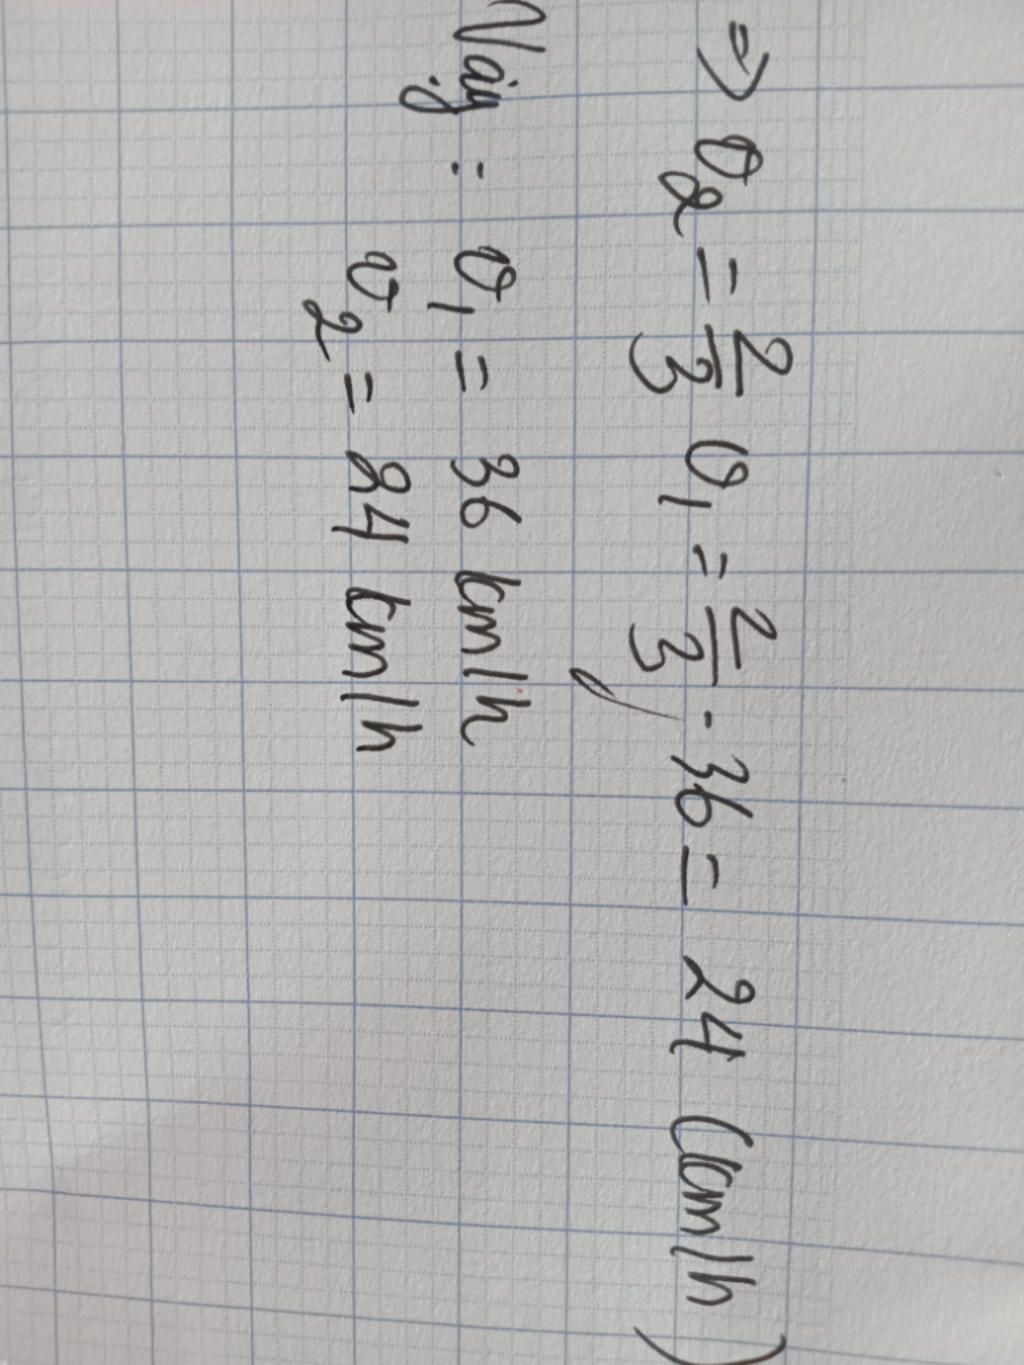 => v₂ = 2/3 v₁ = 2/3 . 36 = 24 (km/h)
Vậy : v₁ = 36 km/h
v₂ = 24 km/h